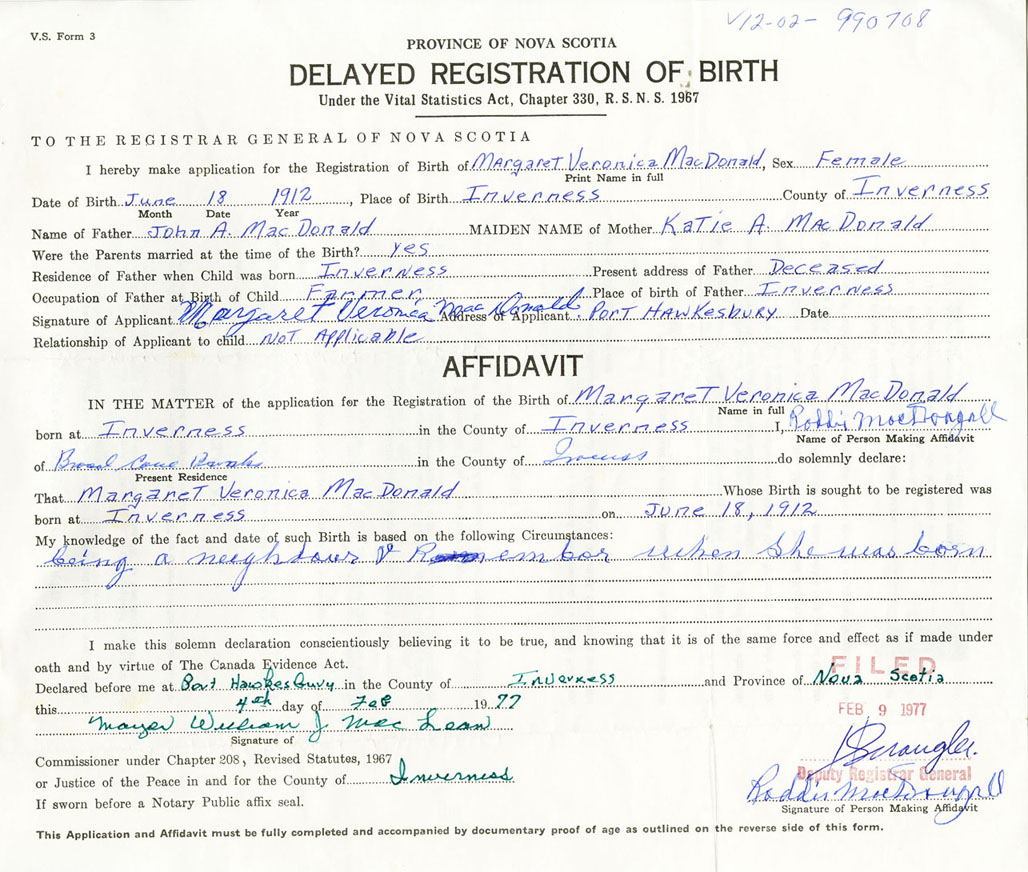 V12-02- 990708
V.S. Form 3
PROVINCE OF NOVA SCOTIA
DELAYED REGISTRATION OF BIRTH
Under the Vital Statistics Act, Chapter 330, R.S.N.S. 1967
TO THE REGISTRAR GENERAL OF NOVA SCOTIA
I hereby make application for the Registration of Birth of Margaret Veronica MacDonald, Sex Female
Print Name in full
Date of Birth June 18 1912, Place of Birth Inverness County of Inverness
Month Date Year
Name of Father John A. MacDonald MAIDEN NAME of Mother Katie A. MacDonald
Were the Parents married at the time of the Birth? yes
Residence of Father when Child was born Inverness Present address of Father Deceased
Occupation of Father at Birth of Child Farmer Place of birth of Father Inverness
Signature of Applicant Margaret Veronica MacDonald Address of Applicant Port Hawkesbury Date
Relationship of Applicant to child Not Applicable
AFFIDAVIT
IN THE MATTER of the application for the Registration of the Birth of Margaret Veronica MacDonald
Name in full
born at Inverness in the County of Inverness I, Roddie MacDougall
Name of Person Making Affidavit
of Broad Cove Banks in the County of Inverness do solemnly declare:
Present Residence
That Margaret Veronica MacDonald Whose Birth is sought to be registered was
born at Inverness on June 18, 1912
My knowledge of the fact and date of such Birth is based on the following Circumstances:
being a neighbour & Remember when she was born
I make this solemn declaration conscientiously believing it to be true, and knowing that it is of the same force and effect as if made under
oath and by virtue of The Canada Evidence Act.
FILED
Declared before me at Port Hawkesbury in the County of Inverness and Province of Nova Scotia
this 4th day of Feb 1977
FEB 9 1977
Mayor William J. MacLean
Signature of
Commissioner under Chapter 208, Revised Statutes, 1967
or Justice of the Peace in and for the County of Inverness
Deputy Registrar General
Roddie MacDougall
Signature of Person Making Affidavit
If sworn before a Notary Public affix seal.
This Application and Affidavit must be fully completed and accompanied by documentary proof of age as outlined on the reverse side of this form.